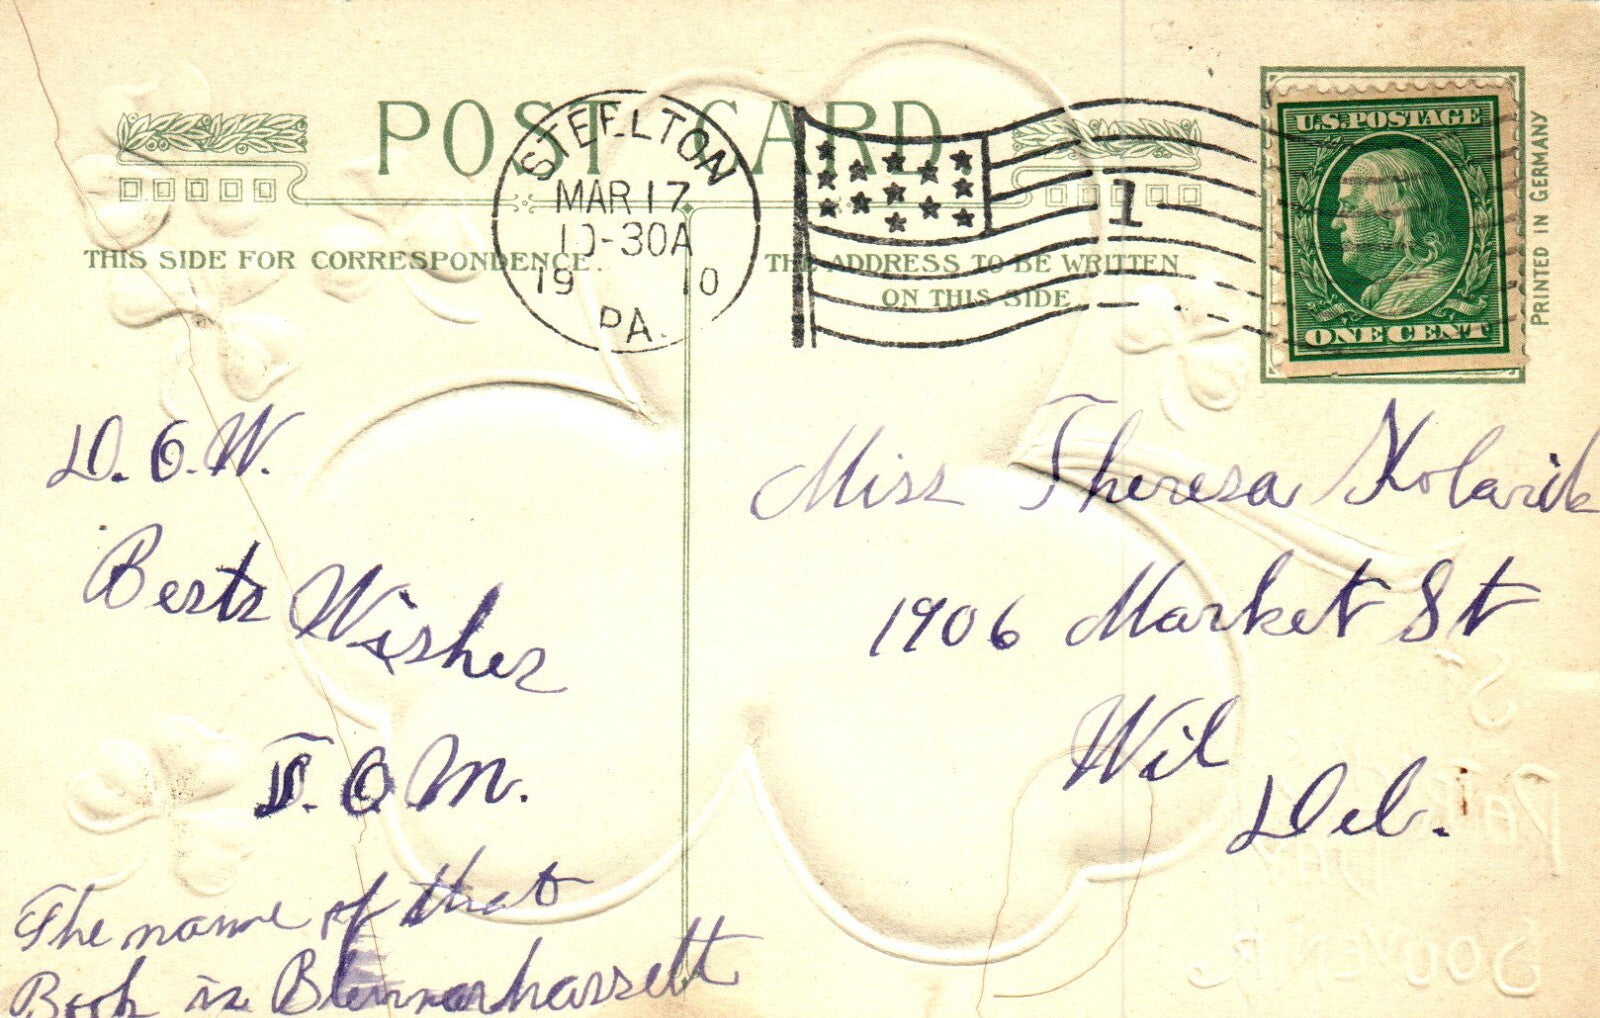 POST CARD
STEELTON
MAR 17
10-30A
19 10
PA.
1
U.S. POSTAGE
ONE CENT
PRINTED IN GERMANY
THIS SIDE FOR CORRESPONDENCE.
THE ADDRESS TO BE WRITTEN
ON THIS SIDE
D. O. W.
Best Wishes
J. O. M.
The name of that
Book is Blennerhassett
Miss Theresa Kolarik
1906 Market St
Wil
Del.
ST
PATRICK'S
DAY
SOUVENIR